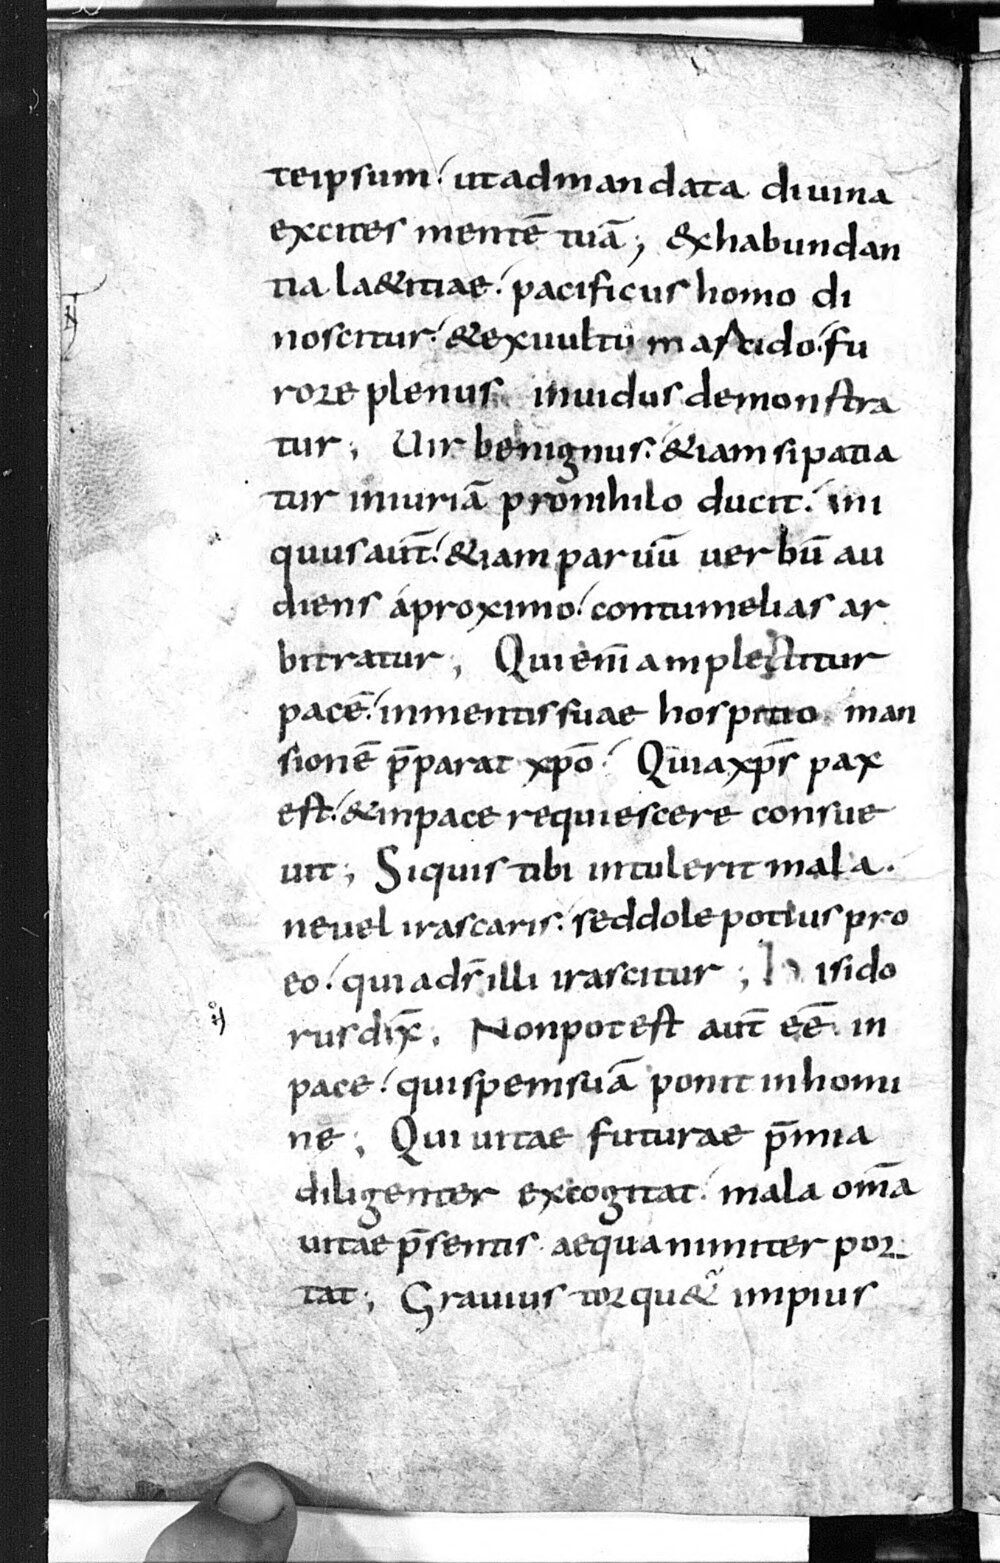 teipsum. ut ad mandata diuina
excites mentē tuā; & ex habundan
tia la&itiae. pacificus homo di
noscitur. & ex uultu marcido. fu
rore plenus inuidus demonstra
tur; Uir benignus. &iam si patia
tur iniuriā pro nihilo ducit. ini
quus aut̄. &iam paruū uerbū au
diens á proximo. contumelias ar
bitratur; Qui enī amplectitur
pacē. in mentis suae hospitio man
sionē p̄parat xpō. Quia xp̄s pax
est. & in pace requiescere consue
uit; Siquis tibi intulerit mala.
ne uel irascaris. sed dole potius pro
eo. qui adr̄ illi irascitur; isido
rus dix̄. Non potest aut̄ eē in
pace. qui spem suā ponit in homi
ne; Qui uitae futurae p̄mia
diligenter excogitat. mala om̄a
uitae p̄sentis aequanimiter por
tat; Grauius torqu& impius